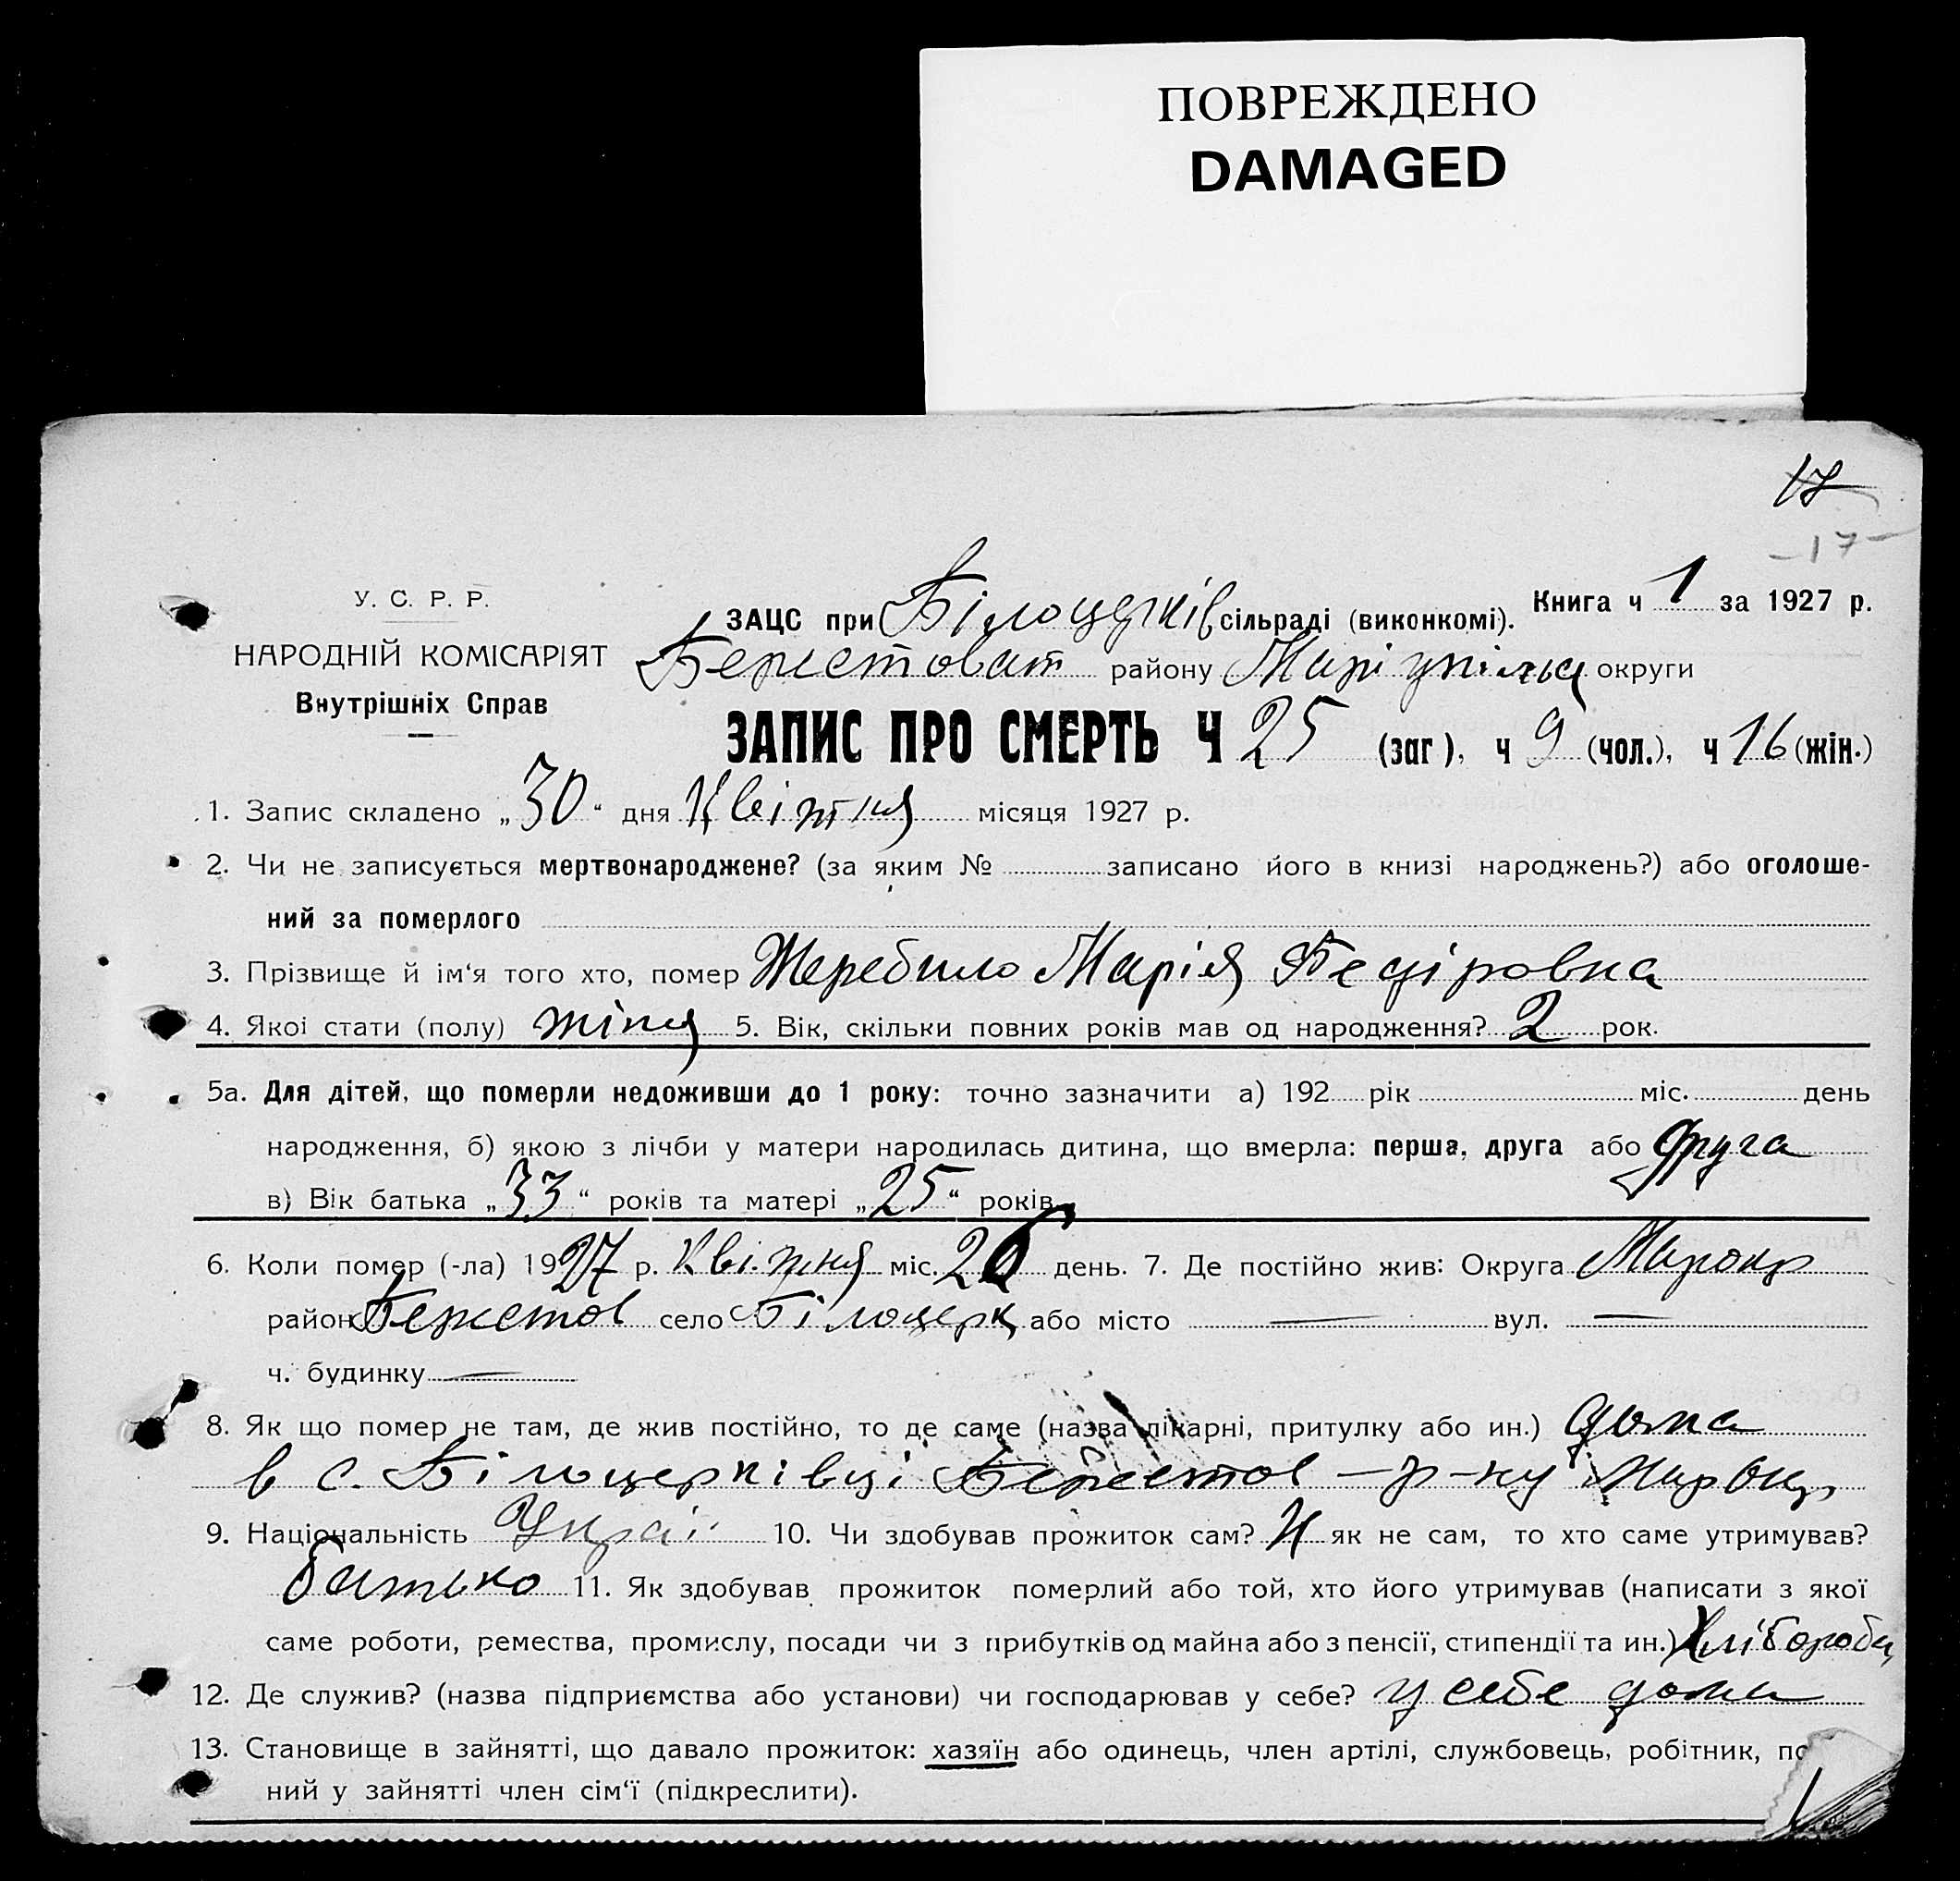 ПОВРЕЖДЕНО
DAMAGED
17
-17-
У. С. Р. Р.
НАРОДНІЙ КОМІСАРІЯТ
Внутрішніх Справ
ЗАЦС при Білоцерків сільраді (виконкомі). Книга ч 1 за 1927 р.
Берестоват району Маріупільс округи
ЗАПИС ПРО СМЕРТЬ Ч 25 (заг), ч 9 (чол.), ч 16 (жін.)
1. Запис складено „30“ дня Квітня місяця 1927 р.
2. Чи не записується мертвонароджене? (за яким № записано його в книзі народжень?) або оголоше-
ний за померлого
3. Прізвище й ім‘я того хто, помер Жеребило Марія
4. Якої стати (полу) 5. Вік, скільки повних років мав од народження? 2 рок.
5а. Для дітей, що померли недоживши до 1 року: точно зазначити а) 192 рік міс. день
народження, б) якою з лічби у матери народилась дитина, що вмерла: перша, друга або друга
в) Вік батька „33“ років та матері „25“ років
6. Коли помер (-ла) 1927 р. Квітня міс. 26 день. 7. Де постійно жив: Округа Марокр
район Берестов село Білоцерк або місто — вул. —
ч. будинку —
8. Як що помер не там, де жив постійно, то де саме (назва лікарні, притулку або ин.) дома
в с. Білоцерківці Берестов-р-ну Мар Окр
9. Національність Украї 10. Чи здобував прожиток сам? Н як не сам, то хто саме утримував?
батько 11. Як здобував прожиток померлий або той, хто його утримував (написати з якої
саме роботи, ремества, промислу, посади чи з прибутків од майна або з пенсії, стипендії та ин.) Хлібороб
12. Де служив? (назва підприємства або установи) чи господарював у себе? у себе дома
13. Становище в зайнятті, що давало прожиток: хазяїн або одинець, член артілі, службовець, робітник, по
ний у зайнятті член сім‘ї (підкреслити).